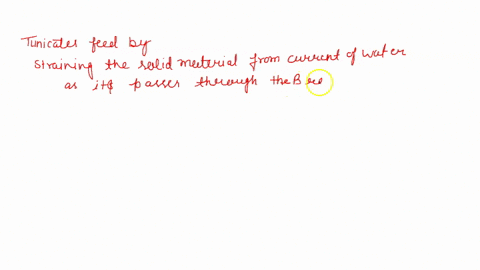 Tunicates feed by
straining the solid material from current of water
as it passes through the B